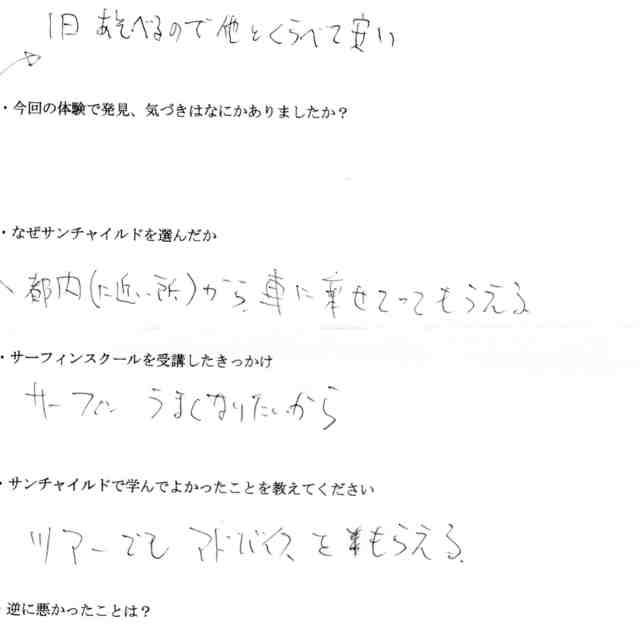 1日あそべるので他とくらべて安い
・今回の体験で発見、気づきはなにかありましたか？
・なぜサンチャイルドを選んだか
都内(に近い所)から、車に乗せてってもらえる
・サーフィンスクールを受講したきっかけ
サーフィン うまくなりたいから
・サンチャイルドで学んでよかったことを教えてください
ツアーでも アドバイスをもらえる。
・逆に悪かったことは？